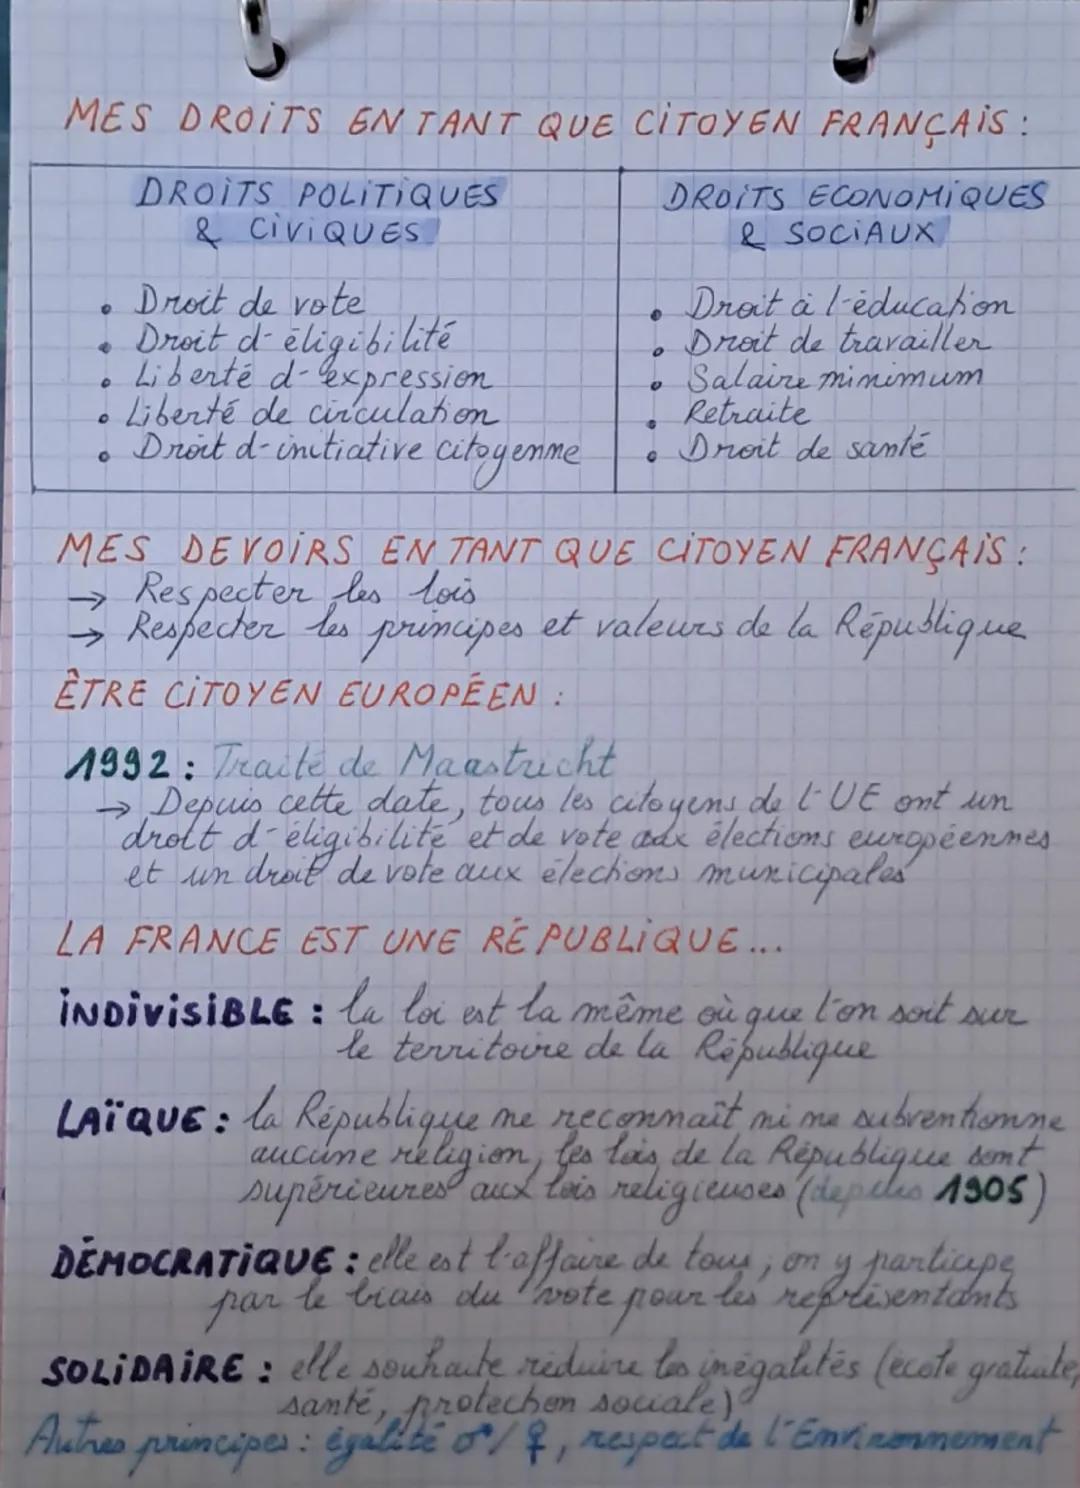 MES DROITS EN TANT QUE CITOYEN FRANÇAIS :
DROITS POLITIQUES
& CIVIQUES
• Droit de vote
• Droit d'éligibilité
• Liberté d'expression
• Liberté de circulation
• Droit d'initiative citoyenne
DROITS ECONOMIQUES
& SOCIAUX
• Droit à l'éducation
• Droit de travailler
• Salaire minimum
• Retraite
• Droit de santé
MES DEVOIRS EN TANT QUE CITOYEN FRANÇAIS :
→ Respecter les lois
→ Respecter les principes et valeurs de la République
ÊTRE CITOYEN EUROPÉEN :
1992 : Traité de Maastricht
→ Depuis cette date, tous les citoyens de l'UE ont un
droit d'éligibilité et de vote aux élections européennes
et un droit de vote aux élections municipales
LA FRANCE EST UNE RÉPUBLIQUE...
INDIVISIBLE : la loi est la même où que l'on soit sur
le territoire de la République
LAÏQUE : la République ne reconnaît ni ne subventionne
aucune religion, les lois de la République sont
supérieures aux lois religieuses (depuis 1905)
DÉMOCRATIQUE : elle est l'affaire de tous, on y participe
par le biais du vote pour les représentants
SOLIDAIRE : elle souhaite réduire les inégalités (école gratuite,
santé, protection sociale)
Autres principes : égalité ♂/♀, respect de l'Environnement